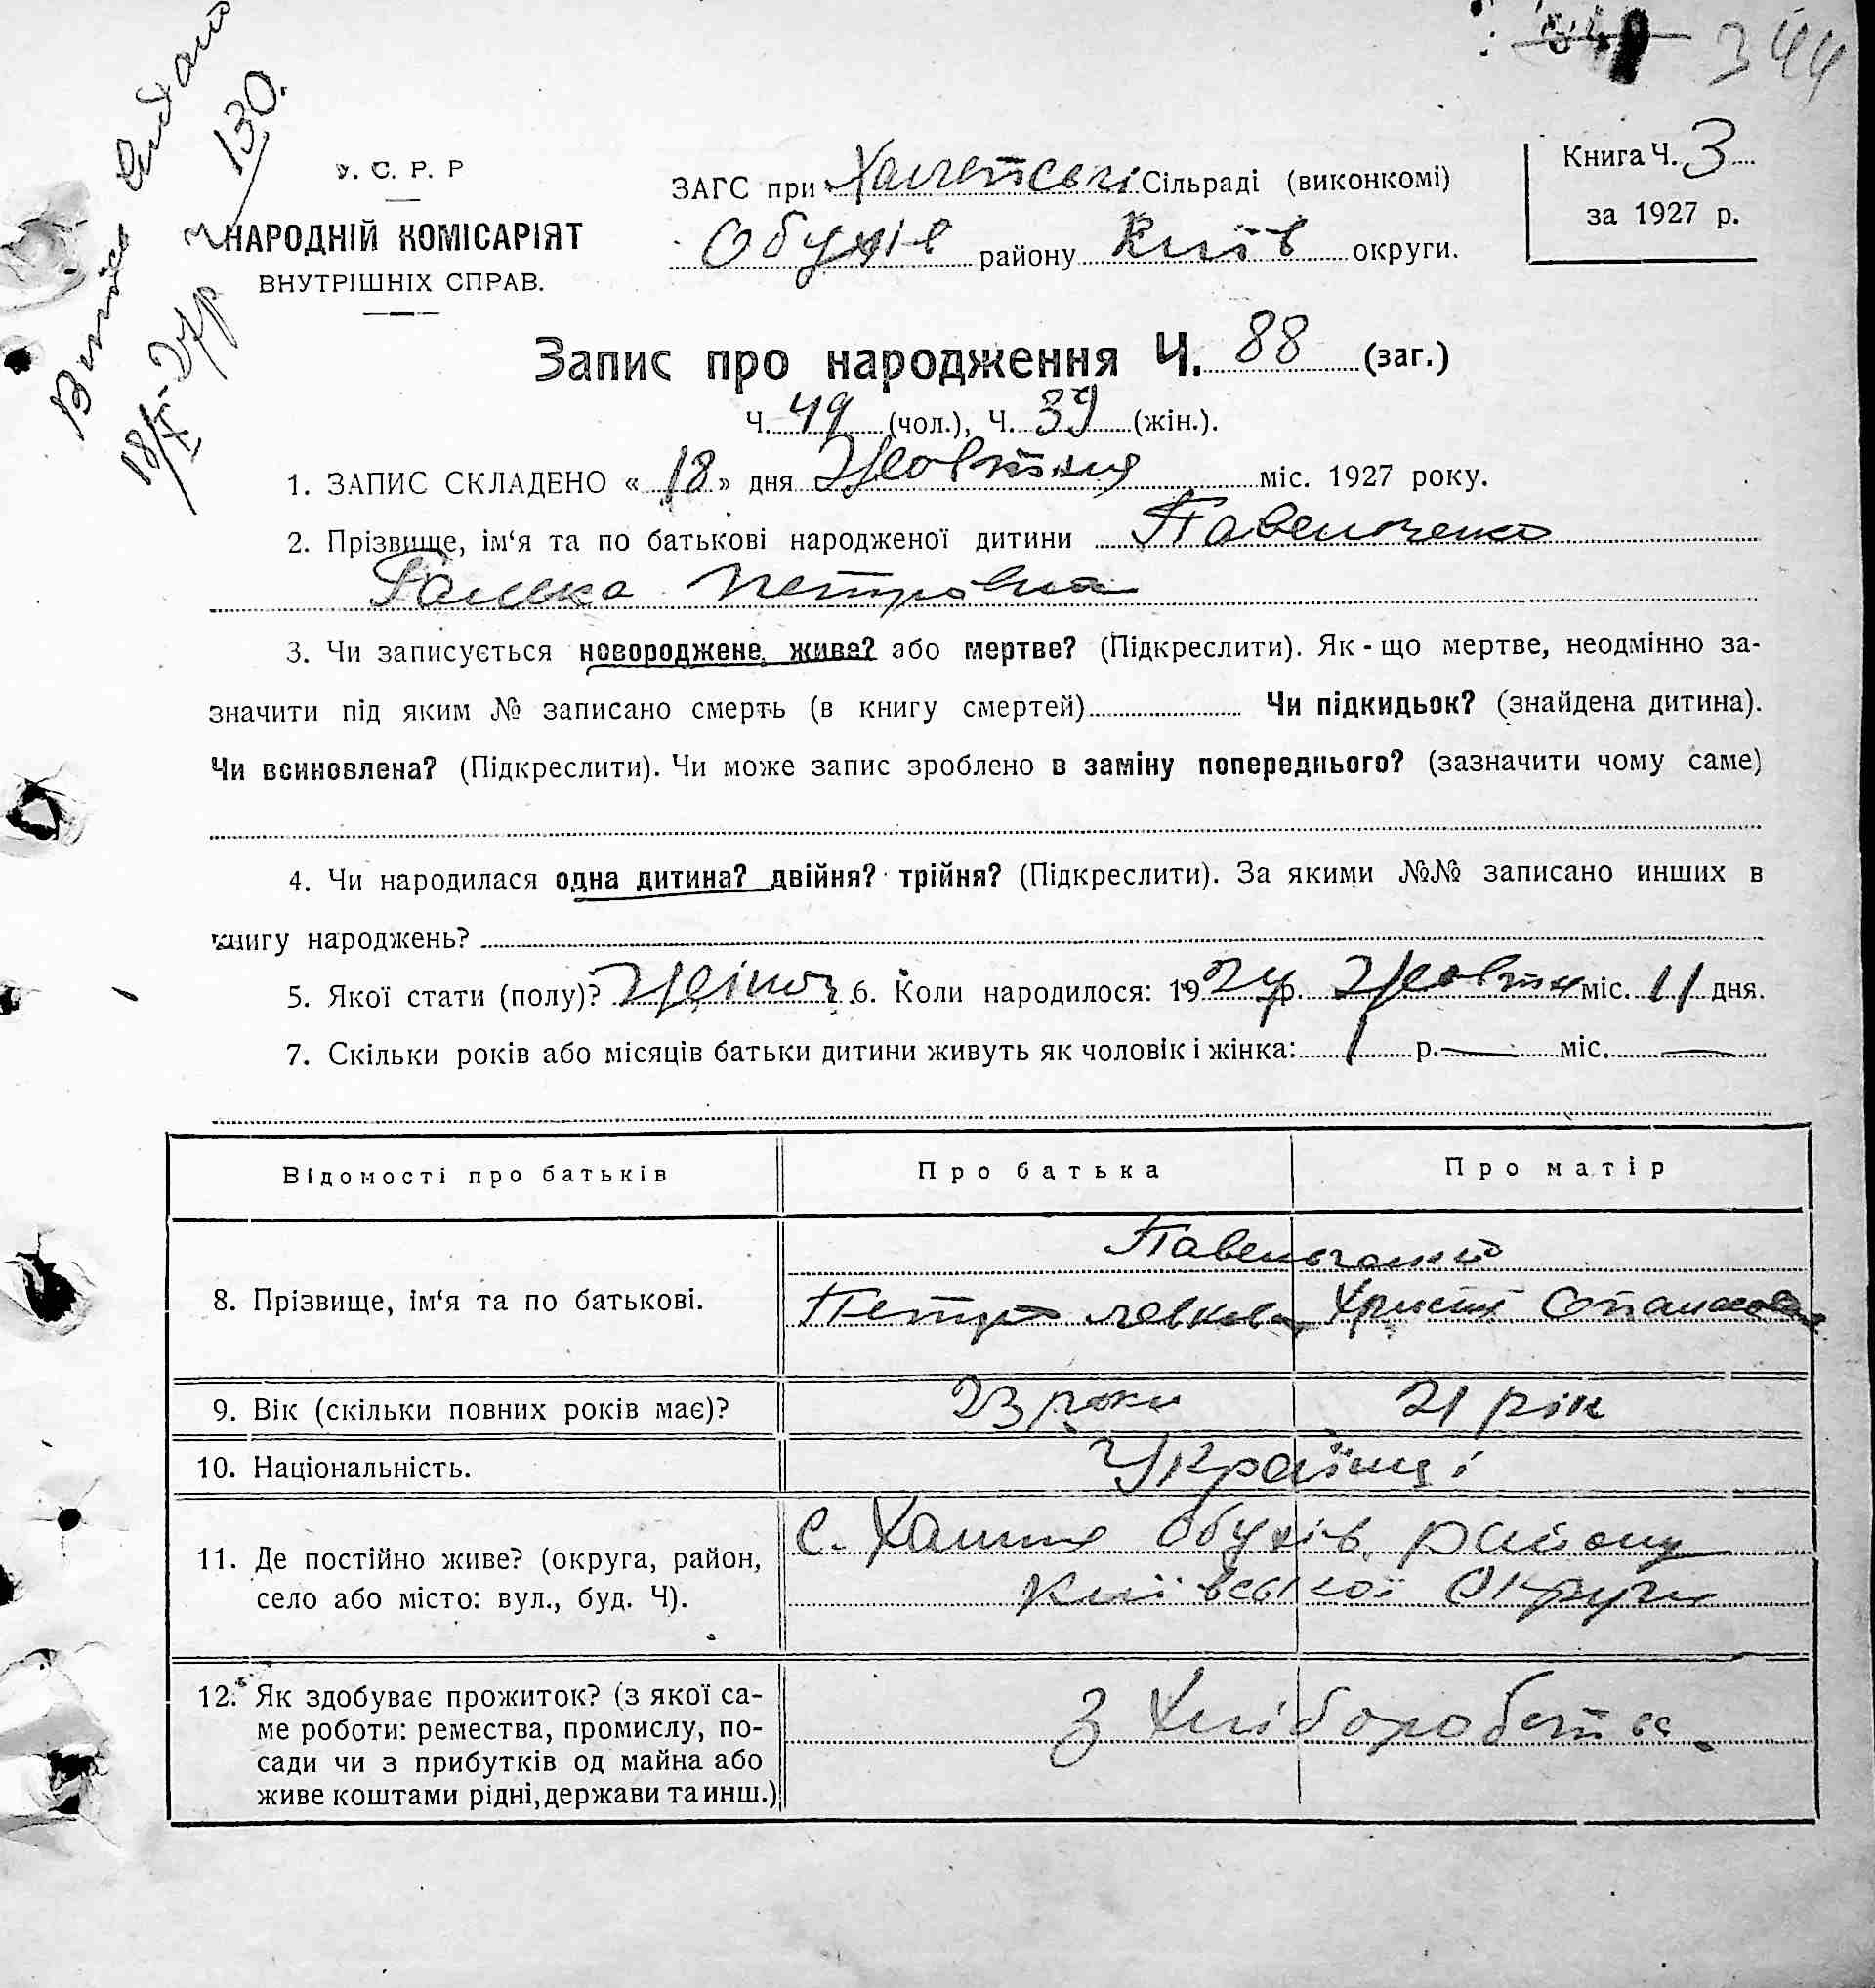 344
Виписъ видано
18/X-27р № 130.
У. С. Р. Р
НАРОДНІЙ КОМІСАРІЯТ
ВНУТРІШНІХ СПРАВ.
ЗАГС при Сільраді (виконкомі)
Обухів району Київ округи.
Книга Ч. 3
за 1927 р.
Запис про народження Ч. 88 (заг.)
Ч. 49 (чол.), Ч. 39 (жін.).
1. ЗАПИС СКЛАДЕНО « 18 » дня Жовтня міс. 1927 року.
2. Прізвище, ім‘я та по батькові народженої дитини Павельченко
Галька Петровна
3. Чи записується новороджене, живе? або мертве? (Підкреслити). Як - що мертве, неодмінно за-
значити під яким № записано смерть (в книгу смертей) Чи підкидьок? (знайдена дитина).
Чи всиновлена? (Підкреслити). Чи може запис зроблено в заміну попереднього? (зазначити чому саме)
4. Чи народилася одна дитина? двійня? трійня? (Підкреслити). За якими №№ записано инших в
книгу народжень?
5. Якої стати (полу)? Жіноч. 6. Коли народилося: 1927 р. Жовтня міс. 11 дня.
7. Скільки років або місяців батьки дитини живуть як чоловік і жінка: 1 р. — міс. —
Відомості про батьків Про батька Про матір
Павельченко
8. Прізвище, ім‘я та по батькові. Петро Левков Христя Опанасова
9. Вік (скільки повних років має)? 23 роки 21 рік
10. Національність. Українці
11. Де постійно живе? (округа, район, с. Халпя Обухів. району
село або місто: вул., буд. Ч). Київської Округи
12. Як здобуває прожиток? (з якої са-
ме роботи: ремества, промислу, по- З Хліборобства
сади чи з прибутків од майна або
живе коштами рідні, держави та инш.)